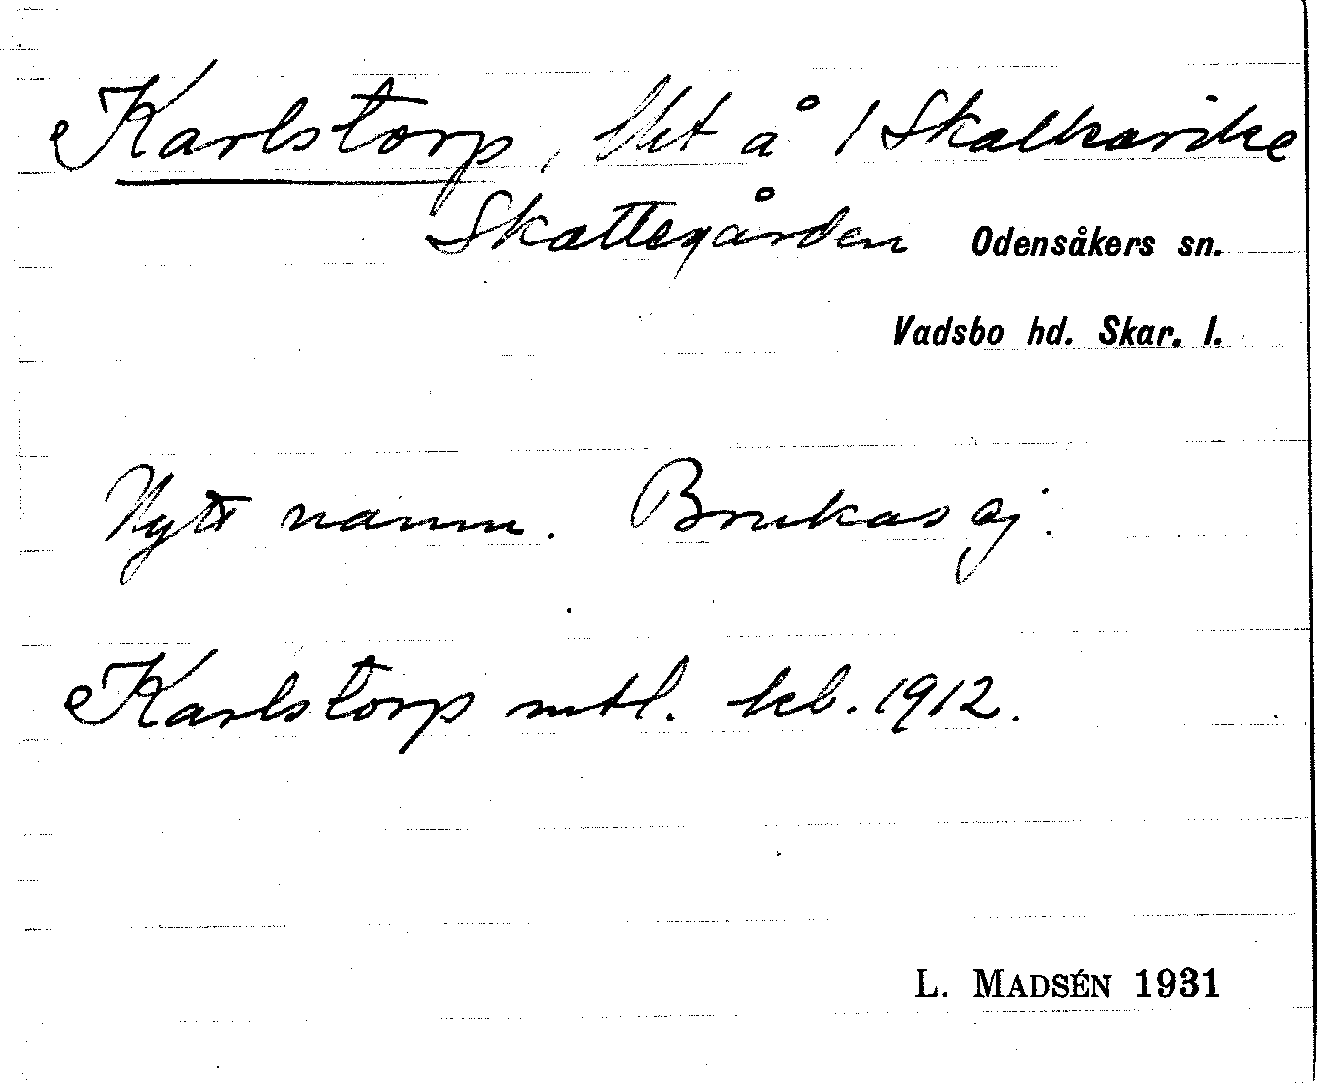 Karlstorp, lht å 1 Skalkarike
Skattegården Odensåkers sn.
Vadsbo hd. Skar. l.
Nytt namn. Brukas ej.
Karlstorp mtl. kb. 1912.
L. MADSÉN 1931